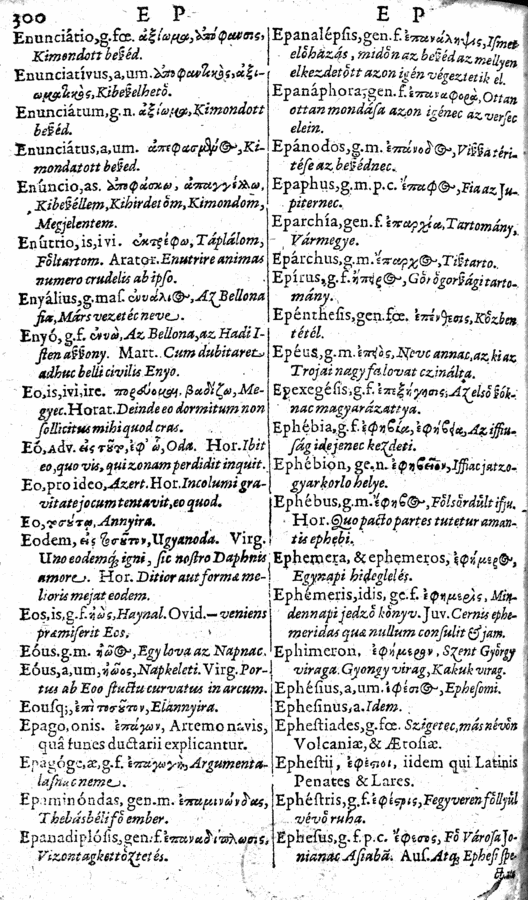 300 E P E P
Enunciátio, g. fœ. ἀξίωμα, ἀπόφασις,
Kimondott beſéd.
Enunciatívus, a, um. ἀποφατικὸς, ἀξι-
ωματικὸς, Kibeſelhetȍ.
Enunciátum, g. n. ἀξίωμα, Kimondott
beſéd.
Enunciátus, a, um. Ki-
mondatott beſed.
Enúncio, as. ἀποφάσκω, ἀπαγγέλλω,
Kibeſéllem, Kihirdetȍm, Kimondom,
Megjelentem.
Enútrio, is, ivi. ἐκτρέφω, Táplálom,
Fȍltartom. Arator. Enutrire animas
numero crudelis ab ipso.
Enyálius, g. maſ. ἐνυάλιος, Az Bellona
fia, Márs vezetéc neve.
Enyó, g. f. ἐνυὼ, Az Bellona, az Hadi I-
ſten aſſony. Mart. Cum dubitaret
adhuc belli civilis Enyo.
Eo, is, ivi, ire. πορεύομαι, βαδίζω, Me-
gyec. Horat. Deinde eo dormitum non
ſollicitus mihi quod cras.
Eó, ADV. εἰς τοῦτ, ἐφ' ᾧ, Oda. Hor. Ibit
eo, quo vis, qui zonam perdidit inquit.
Eo, pro ideo, Azert. Hor. Incolumi gra-
vitate jocum tentavit, eo quod.
Eo, τοσούτῳ, Annyira.
Eodem, εἰς τοῦτον, Ugyanoda. Virg.
Uno eodemq; igni, ſic noſtro Daphnis
amore. Hor. Ditior aut formæ me-
lioris mejat eodem.
Eos, is, g. f. ἠὼς, Haynal. Ovid. — veniens
præmiſerit Eos.
Eóus, g. m. ἠῶος, Egy lova az Napnac.
Eóus, a, um, ἠῶος, Napkeleti. Virg. Por-
tus ab Eoo fluctu curvatus in arcum.
Eousq;, ἐπὶ τοσοῦτον, Elannyira.
Epago, onis. ἐπάγων, Artemo navis,
quâ funes ductarii explicantur.
Epagóge, æ, g. f. ἐπαγωγὴ, Argumenta-
laſnac neme.
Epaminóndas, gen. m. ἐπαμινώνδας,
Thebásbéli fȍ ember.
Epanadiplóſis, gen. f. ἐπαναδίπλωσις,
Vizontagkettȍztetés.
Epanalépſis, gen. f. ἐπανάληψις, Iſmet
elȍházás, midȍn az beſéd az mellyen
elkezdetȍtt azon igén végeztetik el.
Epanáphora, gen. f. ἐπαναφορὰ, Ottan
ottan mondáſa azon igénec az verſec
elein.
Epánodos, g. m. ἐπάνοδος, Viſſa téri-
téſe az beſédnec.
Epaphus, g. m. p. c. ἔπαφος, Fia az Ju-
piternec.
Eparchía, gen. f. ἐπαρχία, Tartomány,
Vármegye.
Epárchus, g. m. ἔπαρχος, Tiſtarto.
Epírus, g. f. ἤπειρος, Gȍrȍgorſági tarto-
mány.
Epéntheſis, gen. fœ. ἐπένθεσις, Kȍzben
tétél.
Epéus, g. m. ἐπειὸς, Nevc annac, az ki az
Trojai nagy fa lovat czinálta.
Epexegéſis, g. f. ἐπεξήγησις, Az elsȍ ſók-
nac magyarázattya.
Ephébia, g. f. ἐφηβία, ἐφηβεία, Az iffiu-
ſág idejenec kezdeti.
Ephébion, ge. n. ἐφηβεῖον, Iffiac jatzo-
gyarkorlo helye.
Ephébus, g. m. ἔφηβος, Fȍlſȍrdült ifju.
Hor. Quo pacto partes tutetur aman-
tis ephebi.
Ephemera, & ephemeros, ἐφήμερος,
Egynapi hideglelés.
Ephéméris, idis, ge. f. ἐφημερὶς, Min-
dennapi jedzȍ kȍnyv. Juv. Cernis ephe-
meridas quæ nullum conſulit & jam.
Ephimeron, ἐφήμερον, Szent Gyȍrgy
viraga. Gyongy virag, Kakuk virag.
Ephéſius, a, um. ἐφέσιος, Epheſomi.
Epheſinus, a. Idem.
Epheſtiades, g. fœ. Szigetec, más névȍn
Volcaniæ, & Ætoſiæ.
Epheſtii, ἐφέστιοι, iidem qui Latinis
Penates & Lares.
Ephéſtris, g. f. ἐφεστρὶς, Fegyveren fȍllyȕl
vévȍ ruha.
Epheſus, g. f. p. c. ἔφεσος, Fȍ Varoſa Jo-
nianac Aſiabā. Auſ. Atq; Epheſi ſpe-